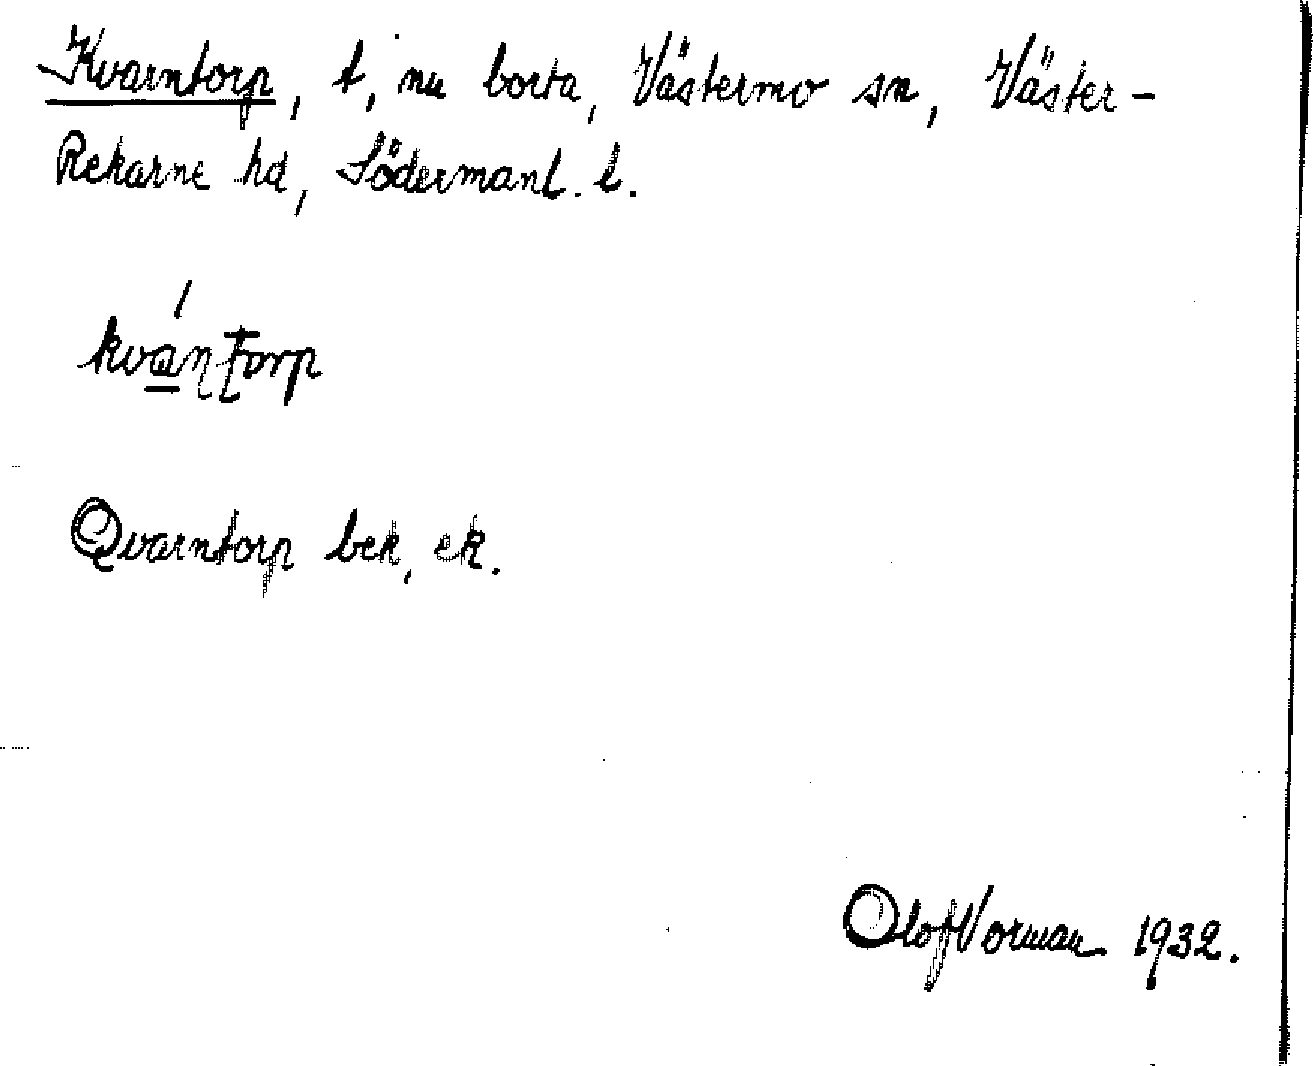 Kvarntorp, t, nu borta, Västermo sn, Väster-
Rekarne hd, Södermanl. l.
kvántorp
Qvarntorp bek, ek.
Olof Vorman 1932.